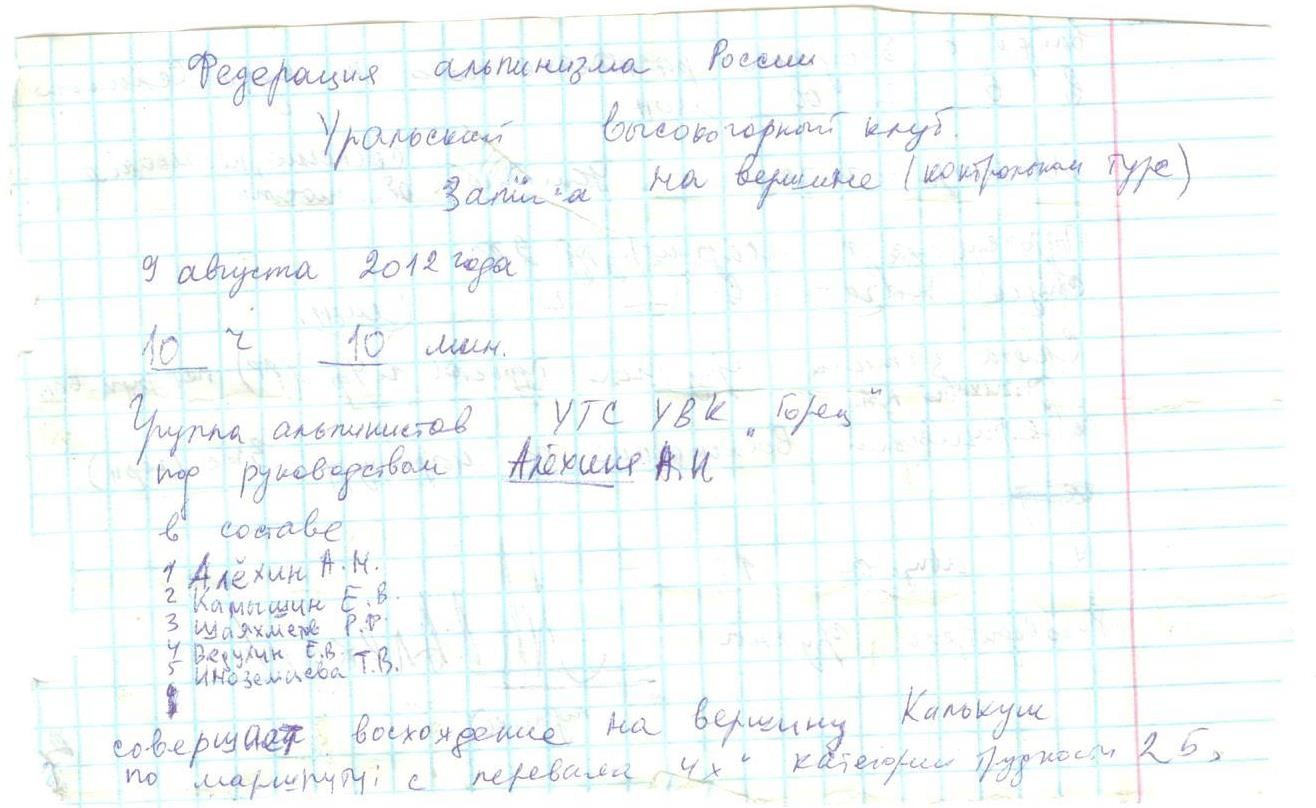 Федерация альпинизма России
Уральский высокогорный клуб.
Записка на вершине (контрольном туре)
9 августа 2012 года
10 ч 10 мин.
Группа альпинистов УТС УВК "Горец"
под руководством Алёхина А.Н
в составе
1 Алёхин А.Н.
2 Камышин Е.В.
3 Шаяхметов Р.Р.
4 Ведухин Е.В.
5 Иноземцева Т.В.
совершает восхождение на вершину Калькуш
по маршруту с перевала 4х" категории трудности 2Б,